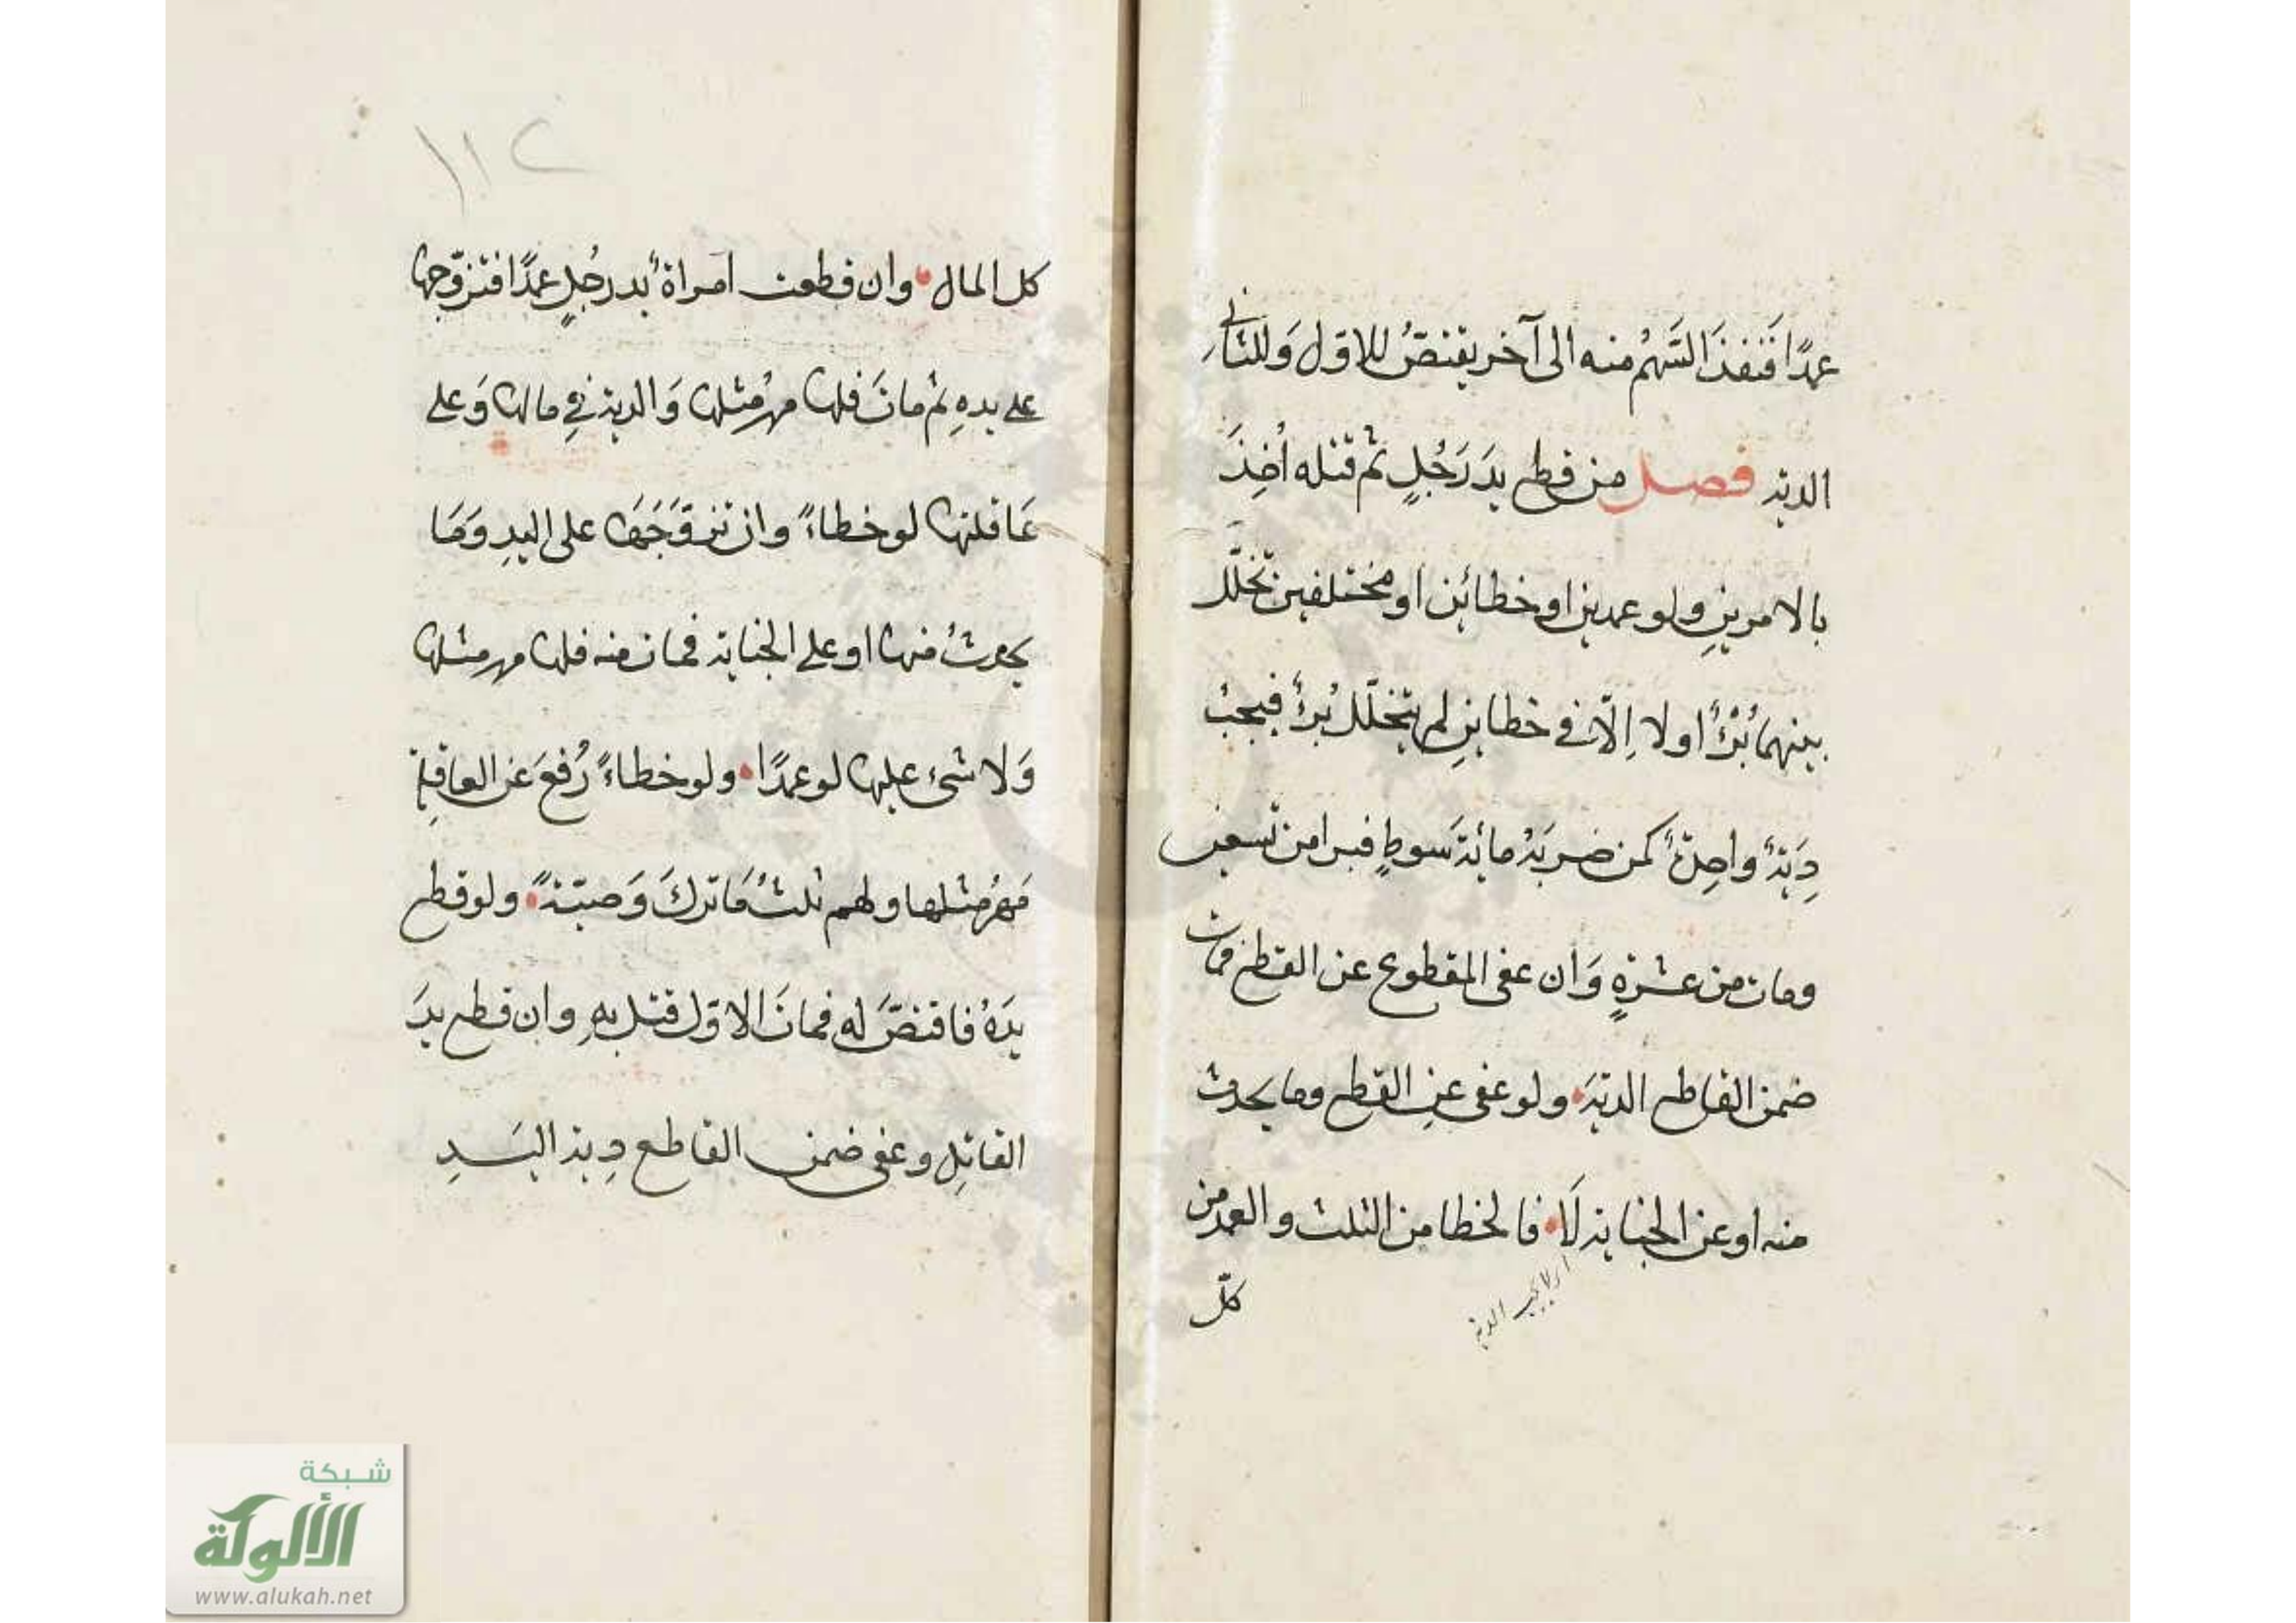 عمدًا فَنَفذَ السَّهْمُ منه الى آخر يقتصُّ للاوّل وَللثانِي
الدية فصل من قطع يدَ رَجُلٍ ثم قتله أُخِذَ
بالامرينِ ولو عمدين او خطائين او مختلفين تخلّل
بينهما بُرْءٌ او لا اِلّا في خطاينِ لم يتخلّل بُرءٌ فيجبُ
دِيَةٌ واحِدةٌ كمن ضربَهُ مائةَ سَوطٍ فبرا من تسعين
ومات من عشرةٍ وَان عفى المقطوع عن القطع فمات
ضمن القاطع الديَةَ ولو عفى عنِ القطع وما يحدث
منه او عن الجناية لَا فالخطا من الثلث والعمد من
كلّ
اى لا يجب الدية
١١٢
كل المال وان قطعت امراةٌ يد رجُلٍ عمدًا فتزوّجها
على يدهِ ثم ماتَ فلها مهرُ مثلها وَالدية في مالها وَعلى
عَاقلتها لو خطاءً وان تزوّجَهَا على اليدِ وَمَا
يحدثُ منها او على الجناية فمات منه فلها مهر مثلها
وَلا شئ عليها لو عمدًا ولو خطاءً رُفعَ عن العاقلة
مَهْرُ مثلها ولهم ثلثُ مَا تركَ وَصيّةً ولو قطع
يدَهُ فاقتصَّ له فماتَ الاوّل قتل بهِ وان قطع يدَ
القاتِل وعفى ضمن القاطع دِية اليَدِ
شبكة
الألوكة
www.alukah.net